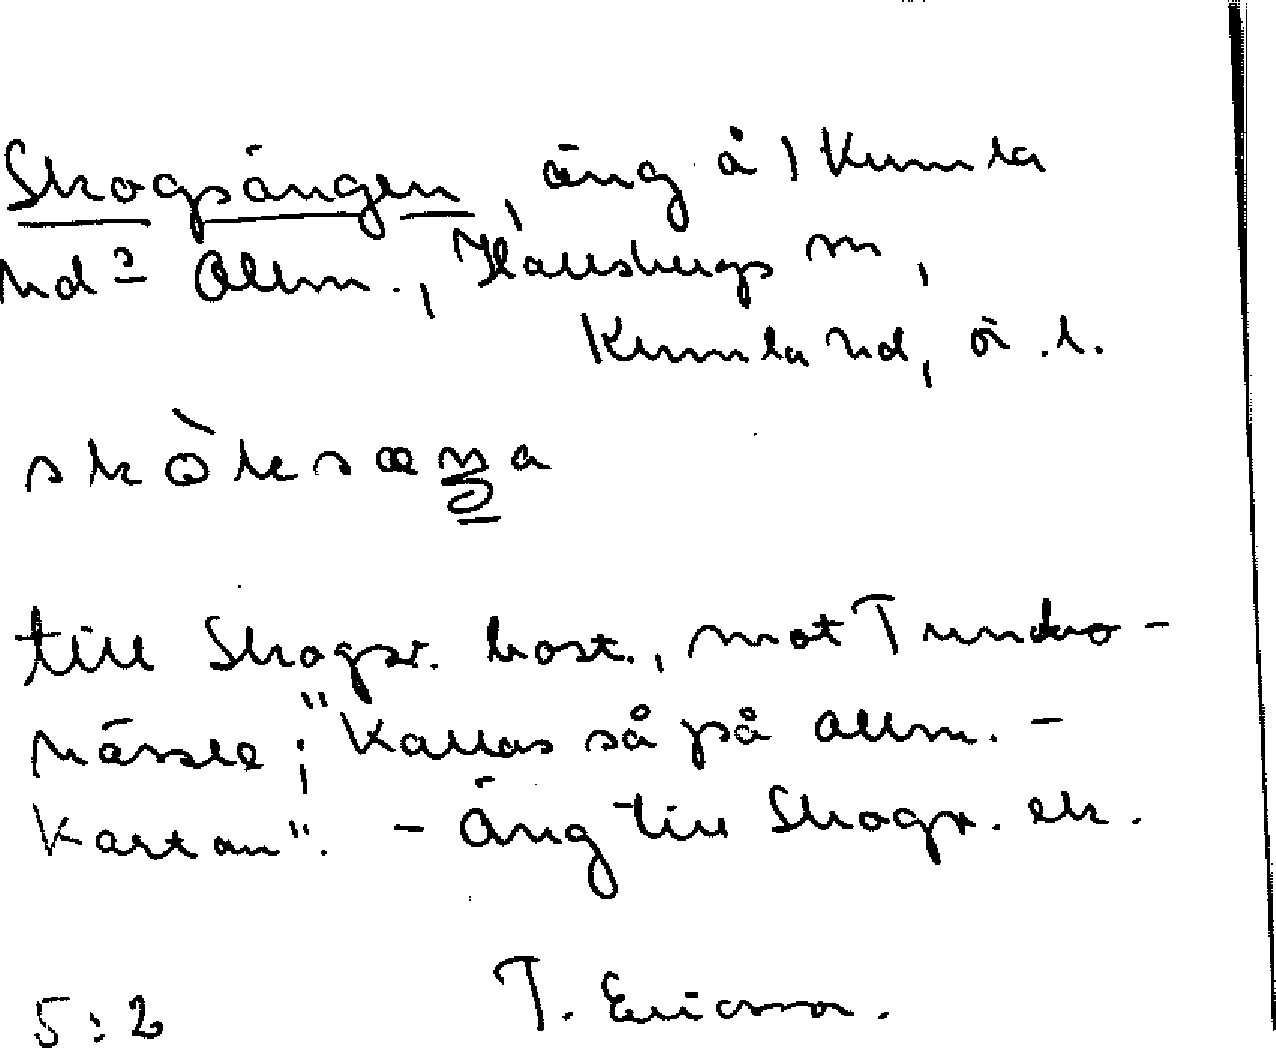 Skogsängen, äng å 1 Kumla
hds Allm., Hallsbergs sn,
Kumla hd, ö. l.
skòksæŋa
till Skogst. bost., mot Tundro-
hässle; "Kallas så på allm. -
Kartan". - Äng till Skogst. ek.
5:2 T. Ericsson.